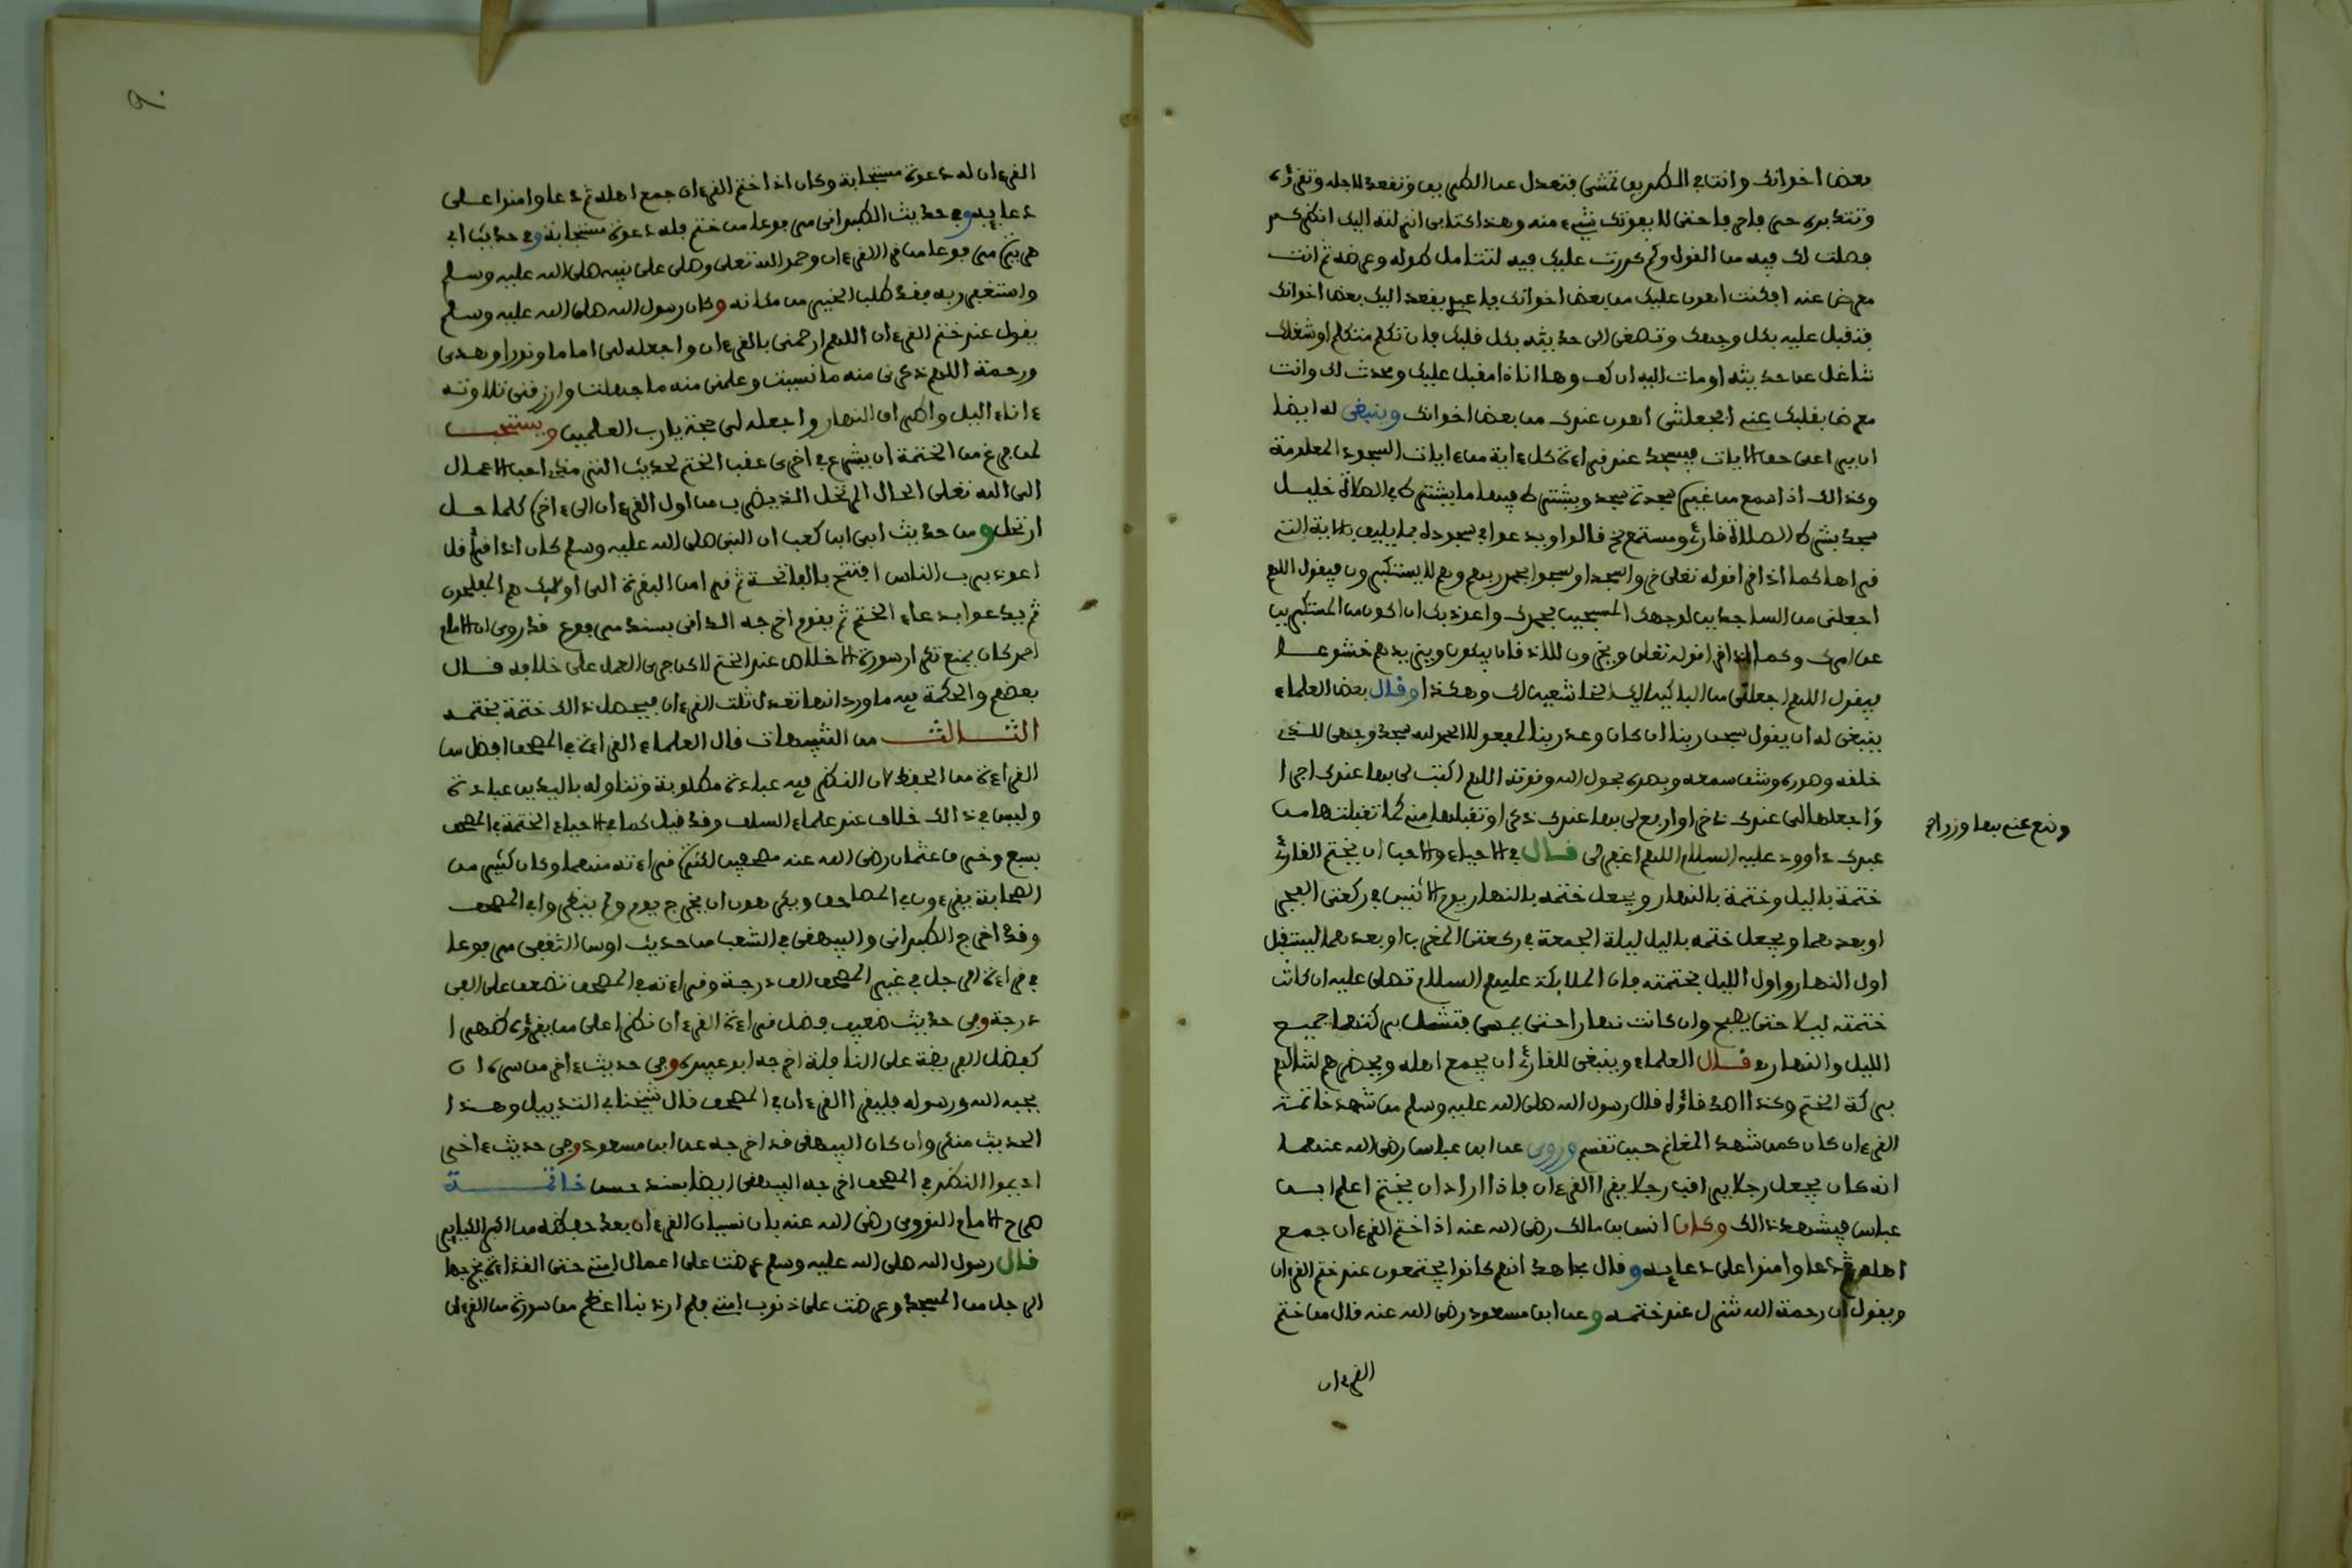 بعض اخوانك وانت في الطريق تمشي فتعدل عن الطريق وتقعد لاجله وتقرؤه
وتتدبره حرفا حرفا حتى لا يفوتك شيء منه وهذا كتابي انزلته اليك انظر كم
فصلت لك فيه من القول وكم كررت عليك فيه لتتامل طوله وعرضه ثم انت
معرض عنه افكنت اهون عليك من بعض اخوانك يا عبدي يقعد اليك بعض اخوانك
فتقبل عليه بكل وجهك وتصغى الى حديثه بكل قلبك فان تكلم متكلم او شغلك
شاغل عن حديثه اومات اليه ان كف وها انا ذا مقبل عليك ومحدث لك وانت
معرض بقلبك عني افجعلتني اهون عندك من بعض اخوانك وينبغي له ايضا
ان يراعي حق الايات فيسجد عند قراءة كل ءاية من ءايات السجود المعلومة
وكذالك اذا سمع من غيره سجدة سجد ويشترط فيها ما يشترط في الصلاة خليل
سجد بشرط الصلاة قارئ ومستمع الخ قالوا ويدعوا في سجوده بما يليق بالاية التي
قراها كما اذا قرا قوله تعلى خروا سجدا وسبحوا بحمد ربهم وهم لا يستكبرون فيقول اللهم
اجعلني من الساجدين لوجهك المسبحين بحمدك واعوذ بك ان اكون من المستكبرين
عن امرك وكما اذا قرا قوله تعلى ويخرون للاذقان يبكون ويزيدهم خشوعا
فيقول اللهم اجعلني من الباكين اليك الخاشعين لك وهكذا وقال بعض العلماء
ينبغي له ان يقول سبحن ربنا ان كان وعد ربنا لمفعولا الحمد لله سجد وجهي للذي
خلقه وصوره وشق سمعه وبصره بحول الله وقوته اللهم اكتب لي بها عندك اجرا
واجعلها لي عندك ذخرا وارفع لي بها عندك ذكرا وتقبلها مني كما تقبلتها من
وضع عني بها وزرا
عبدك داوود عليه السلام اللهم اغفر لي قال في الاحياء والاحب ان يختم القارئ
ختمة بالليل وختمة بالنهار ويجعل ختمه بالنهار يوم الاثنين في ركعتي الفجر
او بعدهما ويجعل ختمه بالليل ليلة الجمعة في ركعتي المغرب او بعدهما ليستقبل
اول النهار واول الليل بختمته فان الملايكة عليهم السلام تصلي عليه ان كانت
ختمته ليلا حتى يصبح وان كانت نهارا حتى يمسي فتشمل بركتها جميع
الليل والنهار وقال العلماء وينبغي للقارئ ان يجمع اهله ويحضرهم لتنالهم
بركة الختم وكذا اصدقاؤه قال رسول الله صلى الله عليه وسلم من شهد خاتمة
القرءان كان كمن شهد المغانم حين تقسم وروي عن ابن عباس رضي الله عنهما
انه كان يجعل رجلا يراقب رجلا يقرا القرءان فاذا اراد ان يختم اعلم ابن
عباس فيشهد ذالك وكان انس بن مالك رضي الله عنه اذا ختم القرءان جمع
اهله ثم دعا وامنوا على دعايه وقال مجاهد انهم كانوا يجتمعون عند ختم القرءان
ويقول ان رحمة الله تنزل عند ختمه وعن ابن مسعود رضي الله عنه قال من ختم
القرءان
٩٠
القرءان له دعوة مستجابة وكان اذا ختم القرءان جمع اهله ثم دعا وامنوا على
دعايه وفي حديث الطبراني مرفوعا من ختم فله دعوة مستجابة وفي حديث ابي
هريرة مرفوعا من قرا القرءان وحمد الله تعلى وصلى على نبيه صلى الله عليه وسلم
واستغفر ربه فقد طلب الخير من مكانه وكان رسول الله صلى الله عليه وسلم
يقول عند ختم القرءان اللهم ارحمني بالقرءان واجعله لي اماما ونورا وهدى
ورحمة اللهم ذكرني منه ما نسيت وعلمني منه ما جهلت وارزقني تلاوته
ءاناء اليل واطراف النهار واجعله لي حجة يا رب العلمين ويستحب
لمن فرغ من الختمة ان يشرع في اخرى عقب الختم لحديث الترمذي احب الاعمال
الى الله تعلى الحال المرتحل الذي يضرب من اول القرءان الى ءاخره كلما حل
ارتحل ومن حديث ابي ابن كعب ان النبي صلى الله عليه وسلم كان اذا اقرأ قل
اعوذ برب الناس افتتح بالفاتحة ثم قرا من البقرة الى اوليك هم المفلحون
ثم يدعوا بدعاء الختم ثم يقوم اخرجه الداني بسند مرفوع قد روي ان الامام
احمد كان يمنع تكرار سورة الاخلاص عند الختم لاكن جرى العمل على خلافه قال
بعضهم والحكمة فيه ما ورد انها تعدل ثلث القرءان فيحصل بذالك ختمة بختمه
الثالث من التنبيهات قال العلماء القراءة في المصحف افضل من
القراءة من الحفظ لان النظر فيه عبادة مطلوبة وتناوله باليدين عبادة
وليس في ذالك خلاف عند علماء السلف وقد قيل كما في الاحياء الختمة في المصحف
بسبع وخرق عثمان رضي الله عنه مصحفين لكثرة قراءته منهما وكان كثير من
الصحابة يقرءون في المصاحف ويكرهون ان يخرج يوم ولم ينظروا في المصحف
وقد اخرج الطبراني والبيهقي في الشعب من حديث اوس الثقفي مرفوعا
في قراءة الرجل في غير المصحف الف درجة وقراءته في المصحف تضعف على الفي
درجة وفي حديث ضعيف فضل قراءة القرءان نظرا على من يقرؤه ظهرا
كفضل الفريضة على النافلة اخرجه ابو عبيدة وفي حديث ءاخر من سره ان
يحبه الله ورسوله فليقرا القرءان في المصحف قال شيخنا في التذييل وهذا
الحديث منكر وان كان البيهقي قد اخرجه عن ابن مسعود وفي حديث ءاخر
اديموا النظر في المصحف اخرجه البيهقي ايضا بسند حسن خاتمة
صرح الامام النووي رضي الله عنه بان نسيان القرءان بعد حفظه من اكبر الكباير
قال رسول الله صلى الله عليه وسلم عرضت علي اعمال امتي حتى القذاة يخرجها
الرجل من المسجد وعرضت علي ذنوب امتي فلم ار ذنبا اعظم من سورة من القرءان